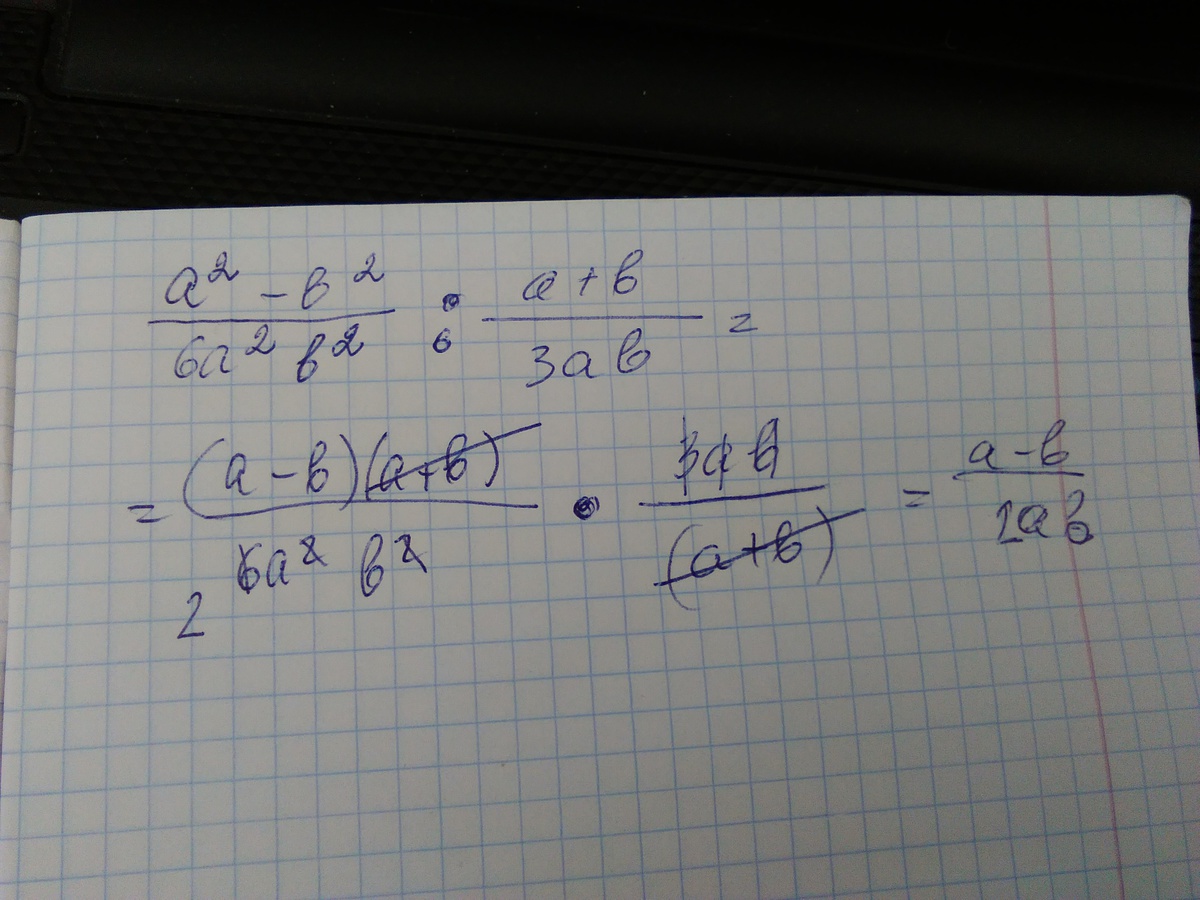 a² - b² / 6a² b² : a + b / 3ab =
= (a - b)(a + b) / 6a² b² • 3ab / (a + b) = a - b / 2ab
2